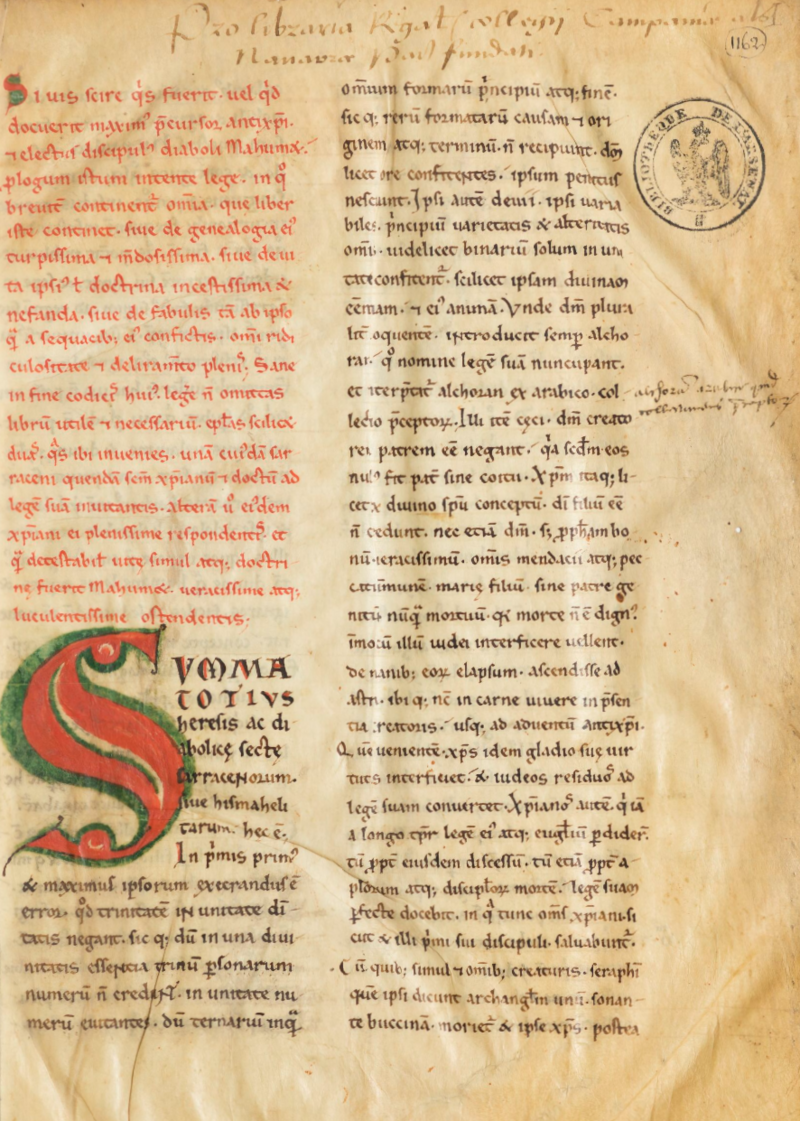 Pro libraria Regal collegij Campaniae al
Navarrae parisius fundati
1162
BIBLIOTHEQUE DE L'ARSENAL
Si uis scire q̇s fuerit. uel q̇d
docuerit maxim᷒ p̄cursor antixp̄i.
⁊ elect᷒ discipul᷒ diaboli Mahumæ.
ꝓlogum istum intente lege. in q̊
breuit̄ continent̄ om̄ia. que liber
iste continet. siue de genealogia ei᷒
turpissima ⁊ m̄dosissima. siue de ui
ta ipsi᷒ ł doctrina incestissima &
nefanda. siue de fabulis tā ab ipso
q̄ a sequacib; ei᷒ confictis. om̄i ridi
culositate ⁊ deliram̄to pleni᷒. Sane
in fine codic᷒ hui᷒ legē n̄ omittas
librū utilē ⁊ necessariū. ep̄las scilic&
duas. q̊s ibi inuenies. unā cui᷒dā sar
raceni quendā sem̄ xp̄ianū ⁊ doctū ad
legē suā inuitantis. alterā u̇ ei᷒dem
xp̄iani ei plenissime respondent᷒. et
q̄ detestabil᷒ uite simul atq; doctri
ne fuerit Mahum&. ueracissime atq;
luculentissime ostendentis.
SVMMA
TOTIVS
heresis ac di
abolicę secte
sarracenorum.
siue hismaheli
tarum. hec ē.
In p̄mis prim᷒
& maximus ipsorum execrandus ē
error. q̊d trinitatē in unitate dī
tatis negant. sic q; dū in una diui
nitatis essentia trinū ꝑsonarum
numerū n̄ credunt. in unitate nu
merū euitantes. dū ternariū inq̄
om̄ium formarū p̄ncipiū atq; finē.
sic q; rerū formatarū causam ⁊ ori
ginem atq; terminū. n̄ recipiunt. dm̄
licet ore confitentes. ipsum penitus
nesciunt. Ipsi autē deuii. ipsi uaria
biles. p̄ncipiū uarietatis & alteritatis
om̄is. uidelicet binariū solum in uni
tate confitent̄. scilicet ipsam diuinam
eēntiam. ⁊ ei᷒ animā. Vnde dm̄ plura
lit̄ loquentē. introducit semꝑ alcho
ran. q̊ nomine legē suā nuncupant.
et iterp̄tat᷒ alchoran ex arabico. col
lectio p̄ceptoꝝ. Illi itē cęci. dm̄ creato
rem patrem eē negant. q̇a sc̄dm eos
null᷒ fit pat̄ sine coitu. Xp̄m itaq; li
cet ex diuino sp̄u conceptū. dī filiū eē
n̄ credunt. nec etiā dm̄. s; ꝓph̄am bo
nū. ueracissimū. om̄is mendacii atq; pec
cati immunē. marię filiū. sine patre ge
nitū. nūq̄ mortuū. q̇a morte n̄ ē dign᷒.
īmo cū illū iudei interficere uellent.
de manib; eoꝝ elapsum. ascendisse ad
astra. ibi q; nc̄ in carne uiuere in p̄sen
tia creatoris. usq; ad aduentū antixp̄i.
Quē uenientē. xp̄s idem gladio suę uir
tutis interficiet. & iudeos residuos ad
legē suam conuertet. Xp̄ianos autē. q̇ iā
a longo tp̄r legē ei᷒ atq; eugl̄iū ꝑdider᷒.
tū ꝓpt̄ eiusdem discessū. tū etiā ꝓpt̄ a
pl̄orum atq; discipl̄oꝝ mortē. legē suam
ꝑfecte docebit. in q̊ tunc om̄s xp̄iani. si
cut & illi p̄mi sui discipuli. saluabunt᷒.
Cū quib; simul ⁊ om̄ib; creaturis. seraphī
quē ipsi dicunt archangl̄m unū. sonan
te buccinā. moriet᷒ & ipse xp̄s. postea